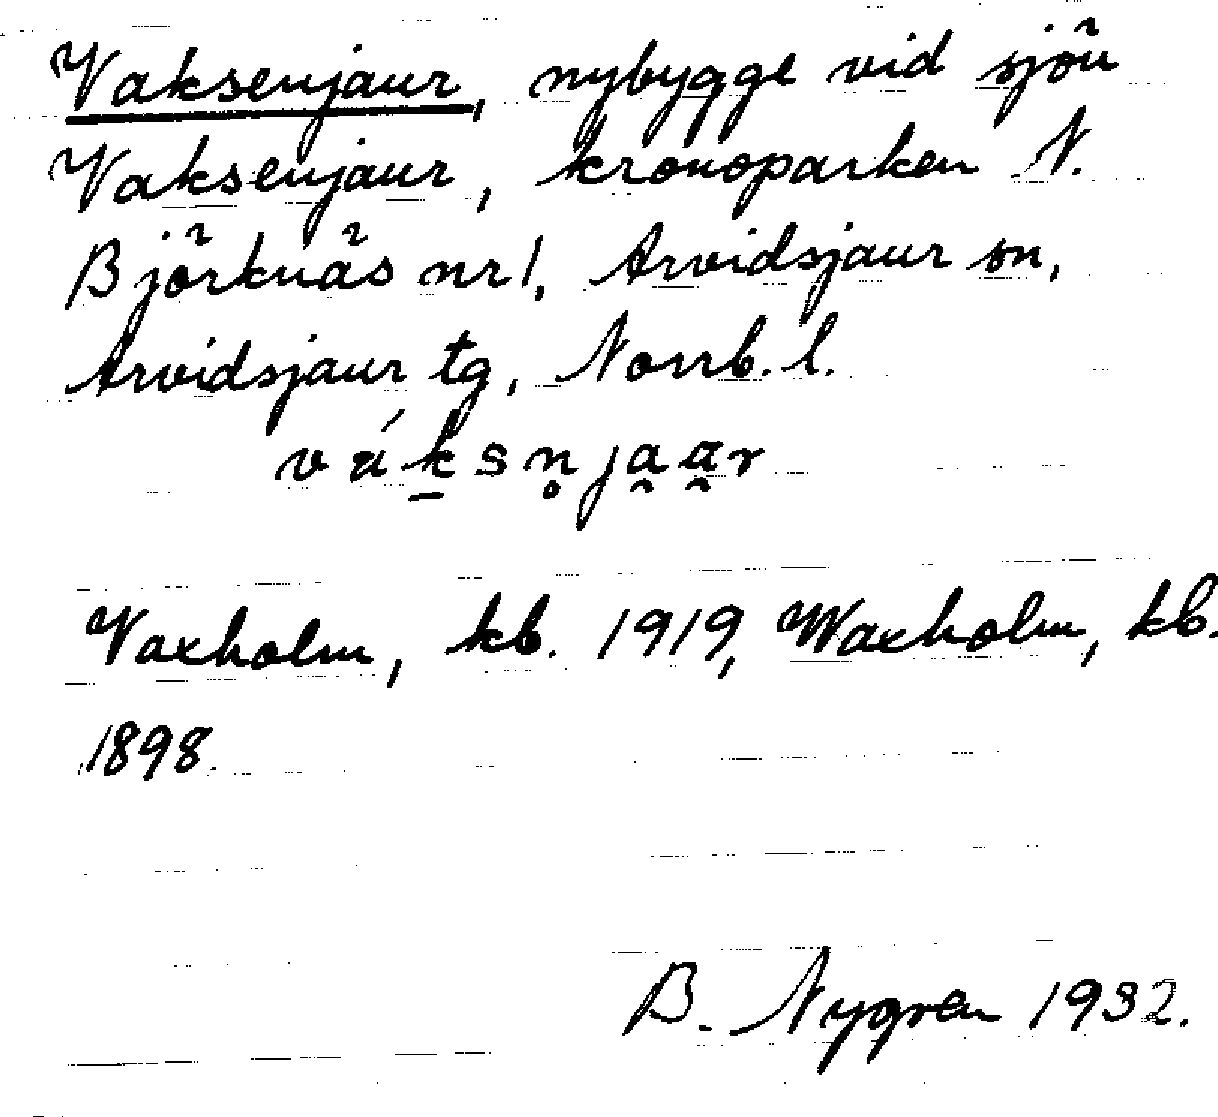 Vaksenjaur, nybygge vid sjön
Vaksenjaur, kronoparken N.
Björknäs nr 1, Arvidsjaur sn,
Arvidsjaur tg, Norrb. l.
vák̲sn̥ja̯a̯r
Vaxholm, kb. 1919, Waxholm, kb.
1898.
B. Nygren 1932.